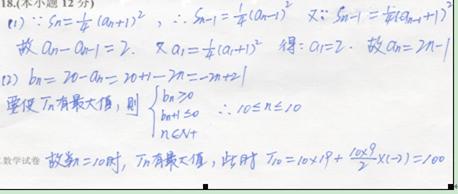 18.(本小题12分)
(1) ∵ Sn=1/4(an+1)², ∴ Sn-1=1/4(an-1)² 又∵ Sn-1=1/4(an-1+1)²
故 an-an-1=2. 又 a1=1/4(a1+1)² 得: a1=2. 故 an=2n-1
(2) bn=20-an=20+1-2n=-2n+21
要使Tn有最大值, 则 { bn≥0
bn+1≤0 ∴ 10≤n≤10
n∈N+
数学试卷 故当n=10时, Tn有最大值, 此时 T10=10×19+10×9/2×(-2)=100